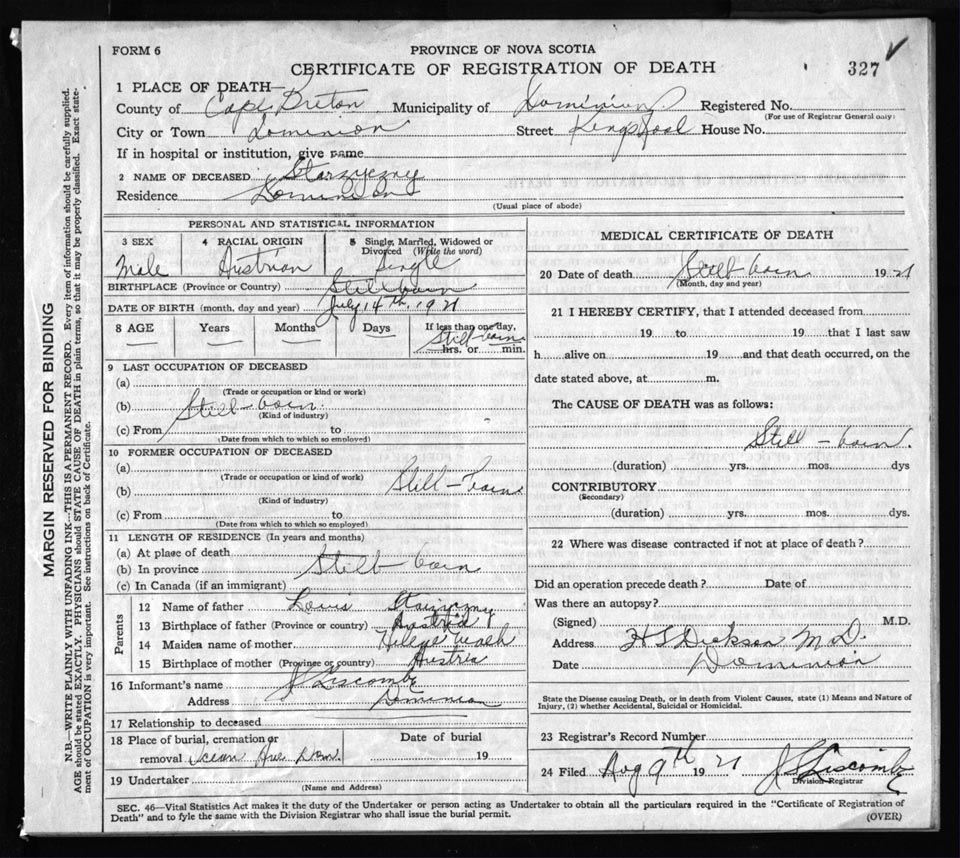 FORM 6
PROVINCE OF NOVA SCOTIA
CERTIFICATE OF REGISTRATION OF DEATH
327
1 PLACE OF DEATH—
County of Cape Breton Municipality of Dominion Registered No.
(For use of Registrar General only)
City or Town Dominion Street House No.
If in hospital or institution, give name
2 NAME OF DECEASED Starzyczny
Residence Dominion
(Usual place of abode)
PERSONAL AND STATISTICAL INFORMATION
3 SEX 4 RACIAL ORIGIN 5 Single, Married, Widowed or Divorced (Write the word)
Male Austrian Single
BIRTHPLACE (Province or Country) Stillborn
DATE OF BIRTH (month, day and year) July 14th, 1921
8 AGE Years Months Days If less than one day,
Still-born
hrs. or min.
9 LAST OCCUPATION OF DECEASED
(a)
(Trade or occupation or kind or work)
(b) Still-born
(Kind of industry)
(c) From to
(Date from which to which so employed)
10 FORMER OCCUPATION OF DECEASED
(a)
(Trade or occupation or kind of work)
(b) Still-born
(Kind of industry)
(c) From to
(Date from which to which so employed)
11 LENGTH OF RESIDENCE (In years and months)
(a) At place of death
(b) In province Still-born
(c) In Canada (if an immigrant)
Parents
12 Name of father Louis Starzyczny
13 Birthplace of father (Province or country) Austria
14 Maiden name of mother
15 Birthplace of mother (Province or country) Austria
16 Informant's name J Liscombe
Address Dominion
17 Relationship to deceased
18 Place of burial, cremation or removal Ocean Ave Dom. Date of burial 19
19 Undertaker
(Name and Address)
MEDICAL CERTIFICATE OF DEATH
20 Date of death Still-born 1921
(Month, day and year)
21 I HEREBY CERTIFY, that I attended deceased from
19 to 19 that I last saw
h alive on 19 and that death occurred, on the
date stated above, at m.
The CAUSE OF DEATH was as follows:
Still-born.
(duration) yrs. mos. dys
CONTRIBUTORY
(Secondary)
(duration) yrs. mos. dys.
22 Where was disease contracted if not at place of death?
Did an operation precede death? Date of
Was there an autopsy?
(Signed) M.D.
Address H S Dickson M.D.
Date Dominion
State the Disease causing Death, or in death from Violent Causes, state (1) Means and Nature of
Injury, (2) whether Accidental, Suicidal or Homicidal.
23 Registrar's Record Number
24 Filed Aug 9th 1921 J Liscombe
Division Registrar
SEC. 46—Vital Statistics Act makes it the duty of the Undertaker or person acting as Undertaker to obtain all the particulars required in the "Certificate of Registration of
Death" and to fyle the same with the Division Registrar who shall issue the burial permit.
(OVER)
MARGIN RESERVED FOR BINDING
N.B.—WRITE PLAINLY WITH UNFADING INK—THIS IS A PERMANENT RECORD. Every item of information should be carefully supplied.
AGE should be stated EXACTLY. PHYSICIANS should STATE CAUSE OF DEATH in plain terms, so that it may be properly classified. Exact state-
ment of OCCUPATION is very important. See instructions on back of Certificate.